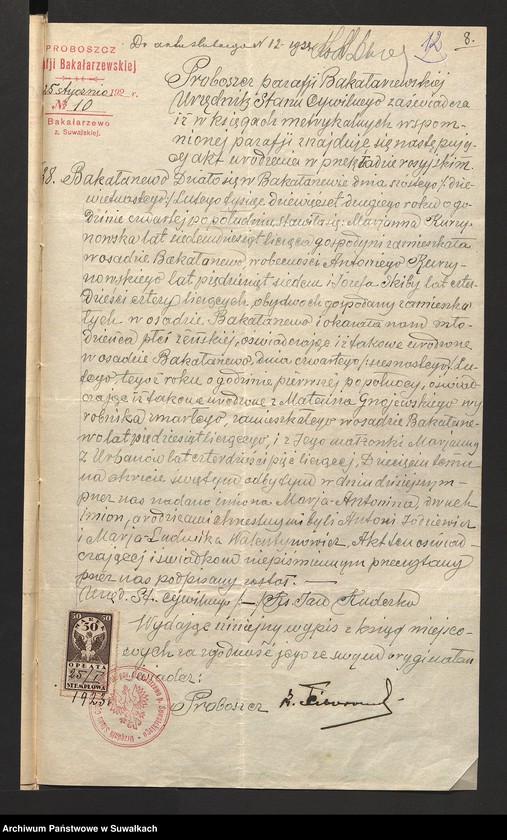 Do aktu ślubnego N 12 - 1924
12
8.
PROBOSZCZ
afji Bakałarzewskiej
25 stycznia 192 r.
№ 10
Bakałarzewo
z. Suwalskiej.
Proboszcz parafji Bakałarzewskiej
Urzędnik Stanu Cywilnego zaświadcza
iż w księgach metrykalnych wspom-
nionej parafji znajduje się następują-
cy akt urodzenia w przekładzie rosyjskim.
48. Bakałarzewo Działo się w Bakałarzewie dnia szóstego /: dzie
więtnastego:/ Lutego tysiąc dziewięćset drugiego roku o go-
dzinie czwartej po południu. Stawiła się: Marjanna Kurzy-
nowska lat siedemdziesiąt licząca gospodyni zamieszkała
w osadzie Bakałarzewo w obecności Antoniego Kurzy-
nowskiego lat pięćdziesiąt siedem i Józefa Skiby lat czter-
dzieści cztery liczących, obydwóch gospodarzy zamieszka
łych w osadzie Bakałarzewo i okazała nam
płci żeńskiej, oświadczając iż takowe urodzone
w osadzie Bakałarzewo, dnia czwartego /: Lu-
tego tegoż roku o godzinie pierwszej po północy, oświad-
czając iż takowe urodzone z Mateusza Gnojewskiego wy
robnika zmarłego, zamieszkałego w osadzie Bakałarze-
wo lat pięćdziesiąt liczącego, i z Jego małżonki Marjanny
z Urbanów lat czterdzieści pięć liczącej, Dziecięciu temu
na chrzcie świętym odbytym w dniu dzisiejszym
przez nas nadano imiona Marja-Antonina, dwuch
Imion, a rodzicami chrzestnymi byli Antoni
i Marja-Ludwika Walentynowicz, Akt ten oświad-
czającej i świadkom niepiśmiennym przeczytany
przez nas podpisany został. —
Urzęd. St. Cywilnego /—/ Ks Jan Kuderko
Wydając niniejszy wypis z ksiąg miejsco-
wych za zgodność jego ze swym oryginałem
świadczę:
Proboszcz
50 50
50
OPŁATA
25/I
STEMPLOWA
1923
Archiwum Państwowe w Suwałkach